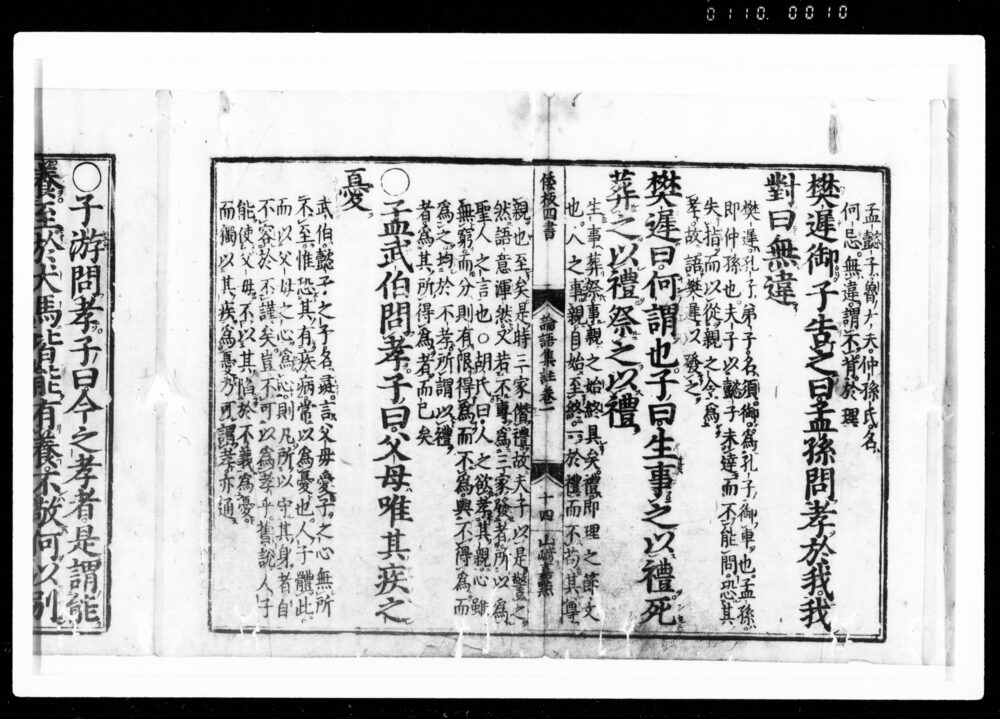 0110. 0010
孟懿子魯大夫仲孫氏名
何忌無違謂不背於理
樊遲御子告之曰孟孫問孝於我我
對曰無違
樊遲孔子弟子名須御爲孔子御車也孟孫
即仲孫也夫子以懿子未達而不能問恐其
失指而以從親之令爲
孝故語樊遲以發之
樊遲曰何謂也子曰生事之以禮死
葬之以禮祭之以禮
生事葬祭事親之始終具矣禮即理之節文
也人之事親自始至終一於禮而不苟其尊
倭板四書 論語集註卷一 十四 山崎嘉點
親也至矣是時三家僭禮故夫子以是警之
然語意渾然又若不專爲三家發者所以爲
聖人之言也○胡氏曰人之欲孝其親心雖
無窮而分則有限得爲而不爲與不得爲而
爲之均於不孝所謂以禮
者爲其所得爲者而已矣
○孟武伯問孝子曰父母唯其疾之
憂
武伯懿子之子名彘言父母愛子之心無所
不至惟恐其有疾病常以爲憂也人子體此
而以父母之心爲心則凡所以守其身者自
不容於不謹矣豈不可以爲孝乎舊說人子
能使父母不以其陷於不義爲憂
而獨以其疾爲憂乃可謂孝亦通
○子游問孝子曰今之孝者是謂能
養至於犬馬皆能有養不敬何以別